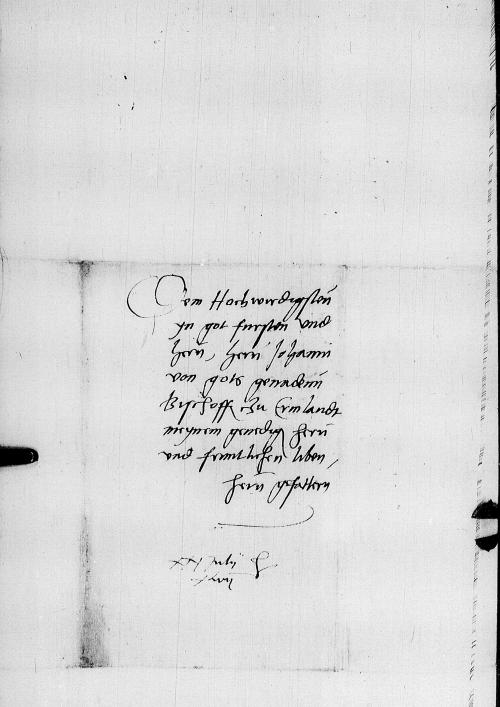 Dem Hochwirdigsten
yn got fursten und
hern, hern Johann
von gots genadenn
Bischoff zu Ermlandt
meynem genedigen hern
und freuntlichen liben,
hern gefattern
XX July